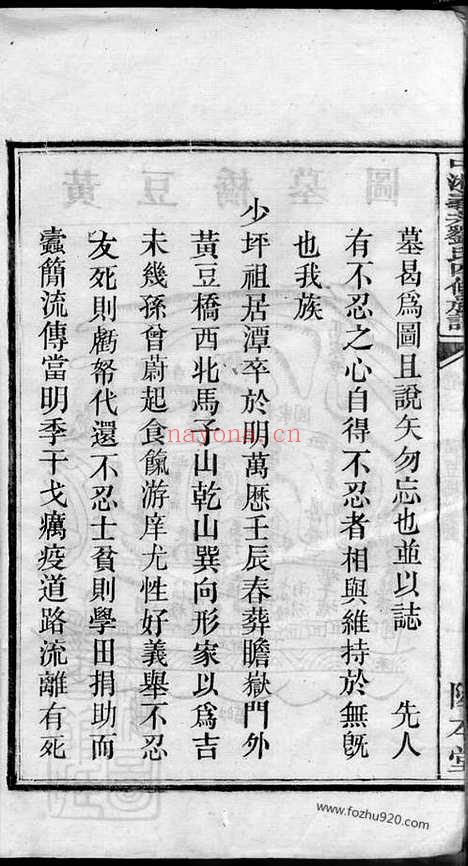 劉氏四修族譜
墓曷爲圖且說矢勿忘也並以誌　先人
有不忍之心自得不忍者相與維持於無旣
也我族
少坪祖居潭卒於明萬厯壬辰春葬瞻嶽門外
黃豆橋西北馬子山乾山巽向形家以爲吉
未幾孫曾蔚起食餼游庠尤性好義舉不忍
友死則虧帑代還不忍士貧則學田捐助而
蠹簡流傳當明季干戈癘疫道路流離有死
nayona.cn
www.fozhu920.com